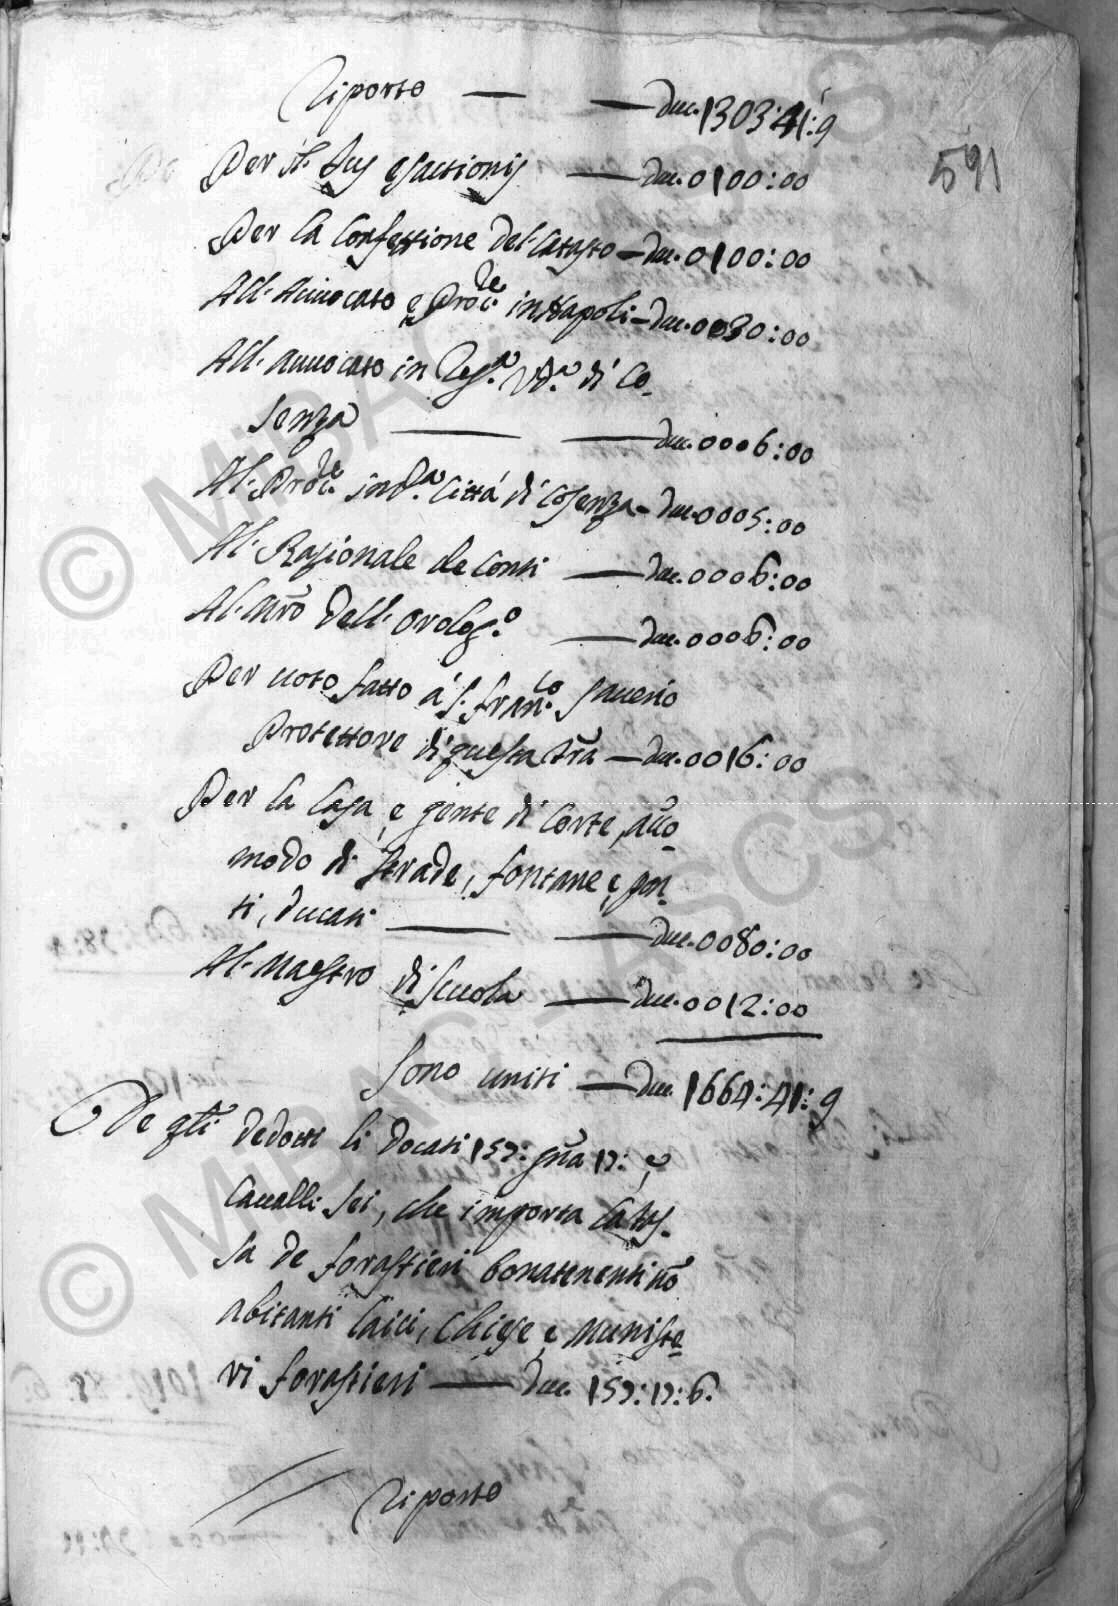 Riporto — — duc. 1303:41:9
591
Per il Jus esactionis — duc. 0100:00
Per la Confettione del Catasto — duc. 0100:00
All'Avvocato e Proc.re in Napoli — duc. 0030:00
All'avvocato in Reg.a Ud.a di Co-
senza — — duc. 0006:00
Al Proc.re in d.a Città di Cosenza — duc. 0005:00
Al Razionale de Conti — duc. 0006:00
Al Mro dell'Orolog.o — duc. 0006:00
Per voto fatto á S. Fran.co Saverio
Protettore di questa Trã — duc. 0016:00
Per la Casa, e gente di Corte, acco-
modo di strade, fontane, e pon-
ti, ducati — — duc. 0080:00
Al Maestro di Scuola — duc. 0012:00
Sono uniti — duc. 1664:41:9
De qli dedotti li docati 157: gña 17: e
Cavalli sei, che importa la tas-
sa de forastieri bonatenenti nõ
abitanti laici, Chiese, e Muniste-
ri forastieri — duc. 157:17:6.
Riporto
© MiBAC - ASCS
© MiBAC - ASCS